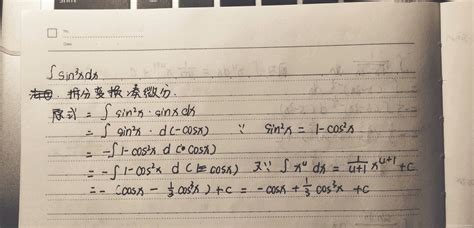 No.
Date
∫sin³xdx
拆分变换凑微分.
原式 = ∫sin²x·sinxdx
= ∫sin²x·d(-cosx) ∵ sin²x = 1-cos²x
= -∫1-cos²x d(cosx)
= -∫1-cos²x d(cosx) 又∵ ∫xᵘdx = 1/(u+1) xᵘ⁺¹+c
= -(cosx - 1/3 cos³x)+c = -cosx + 1/3 cos³x +c